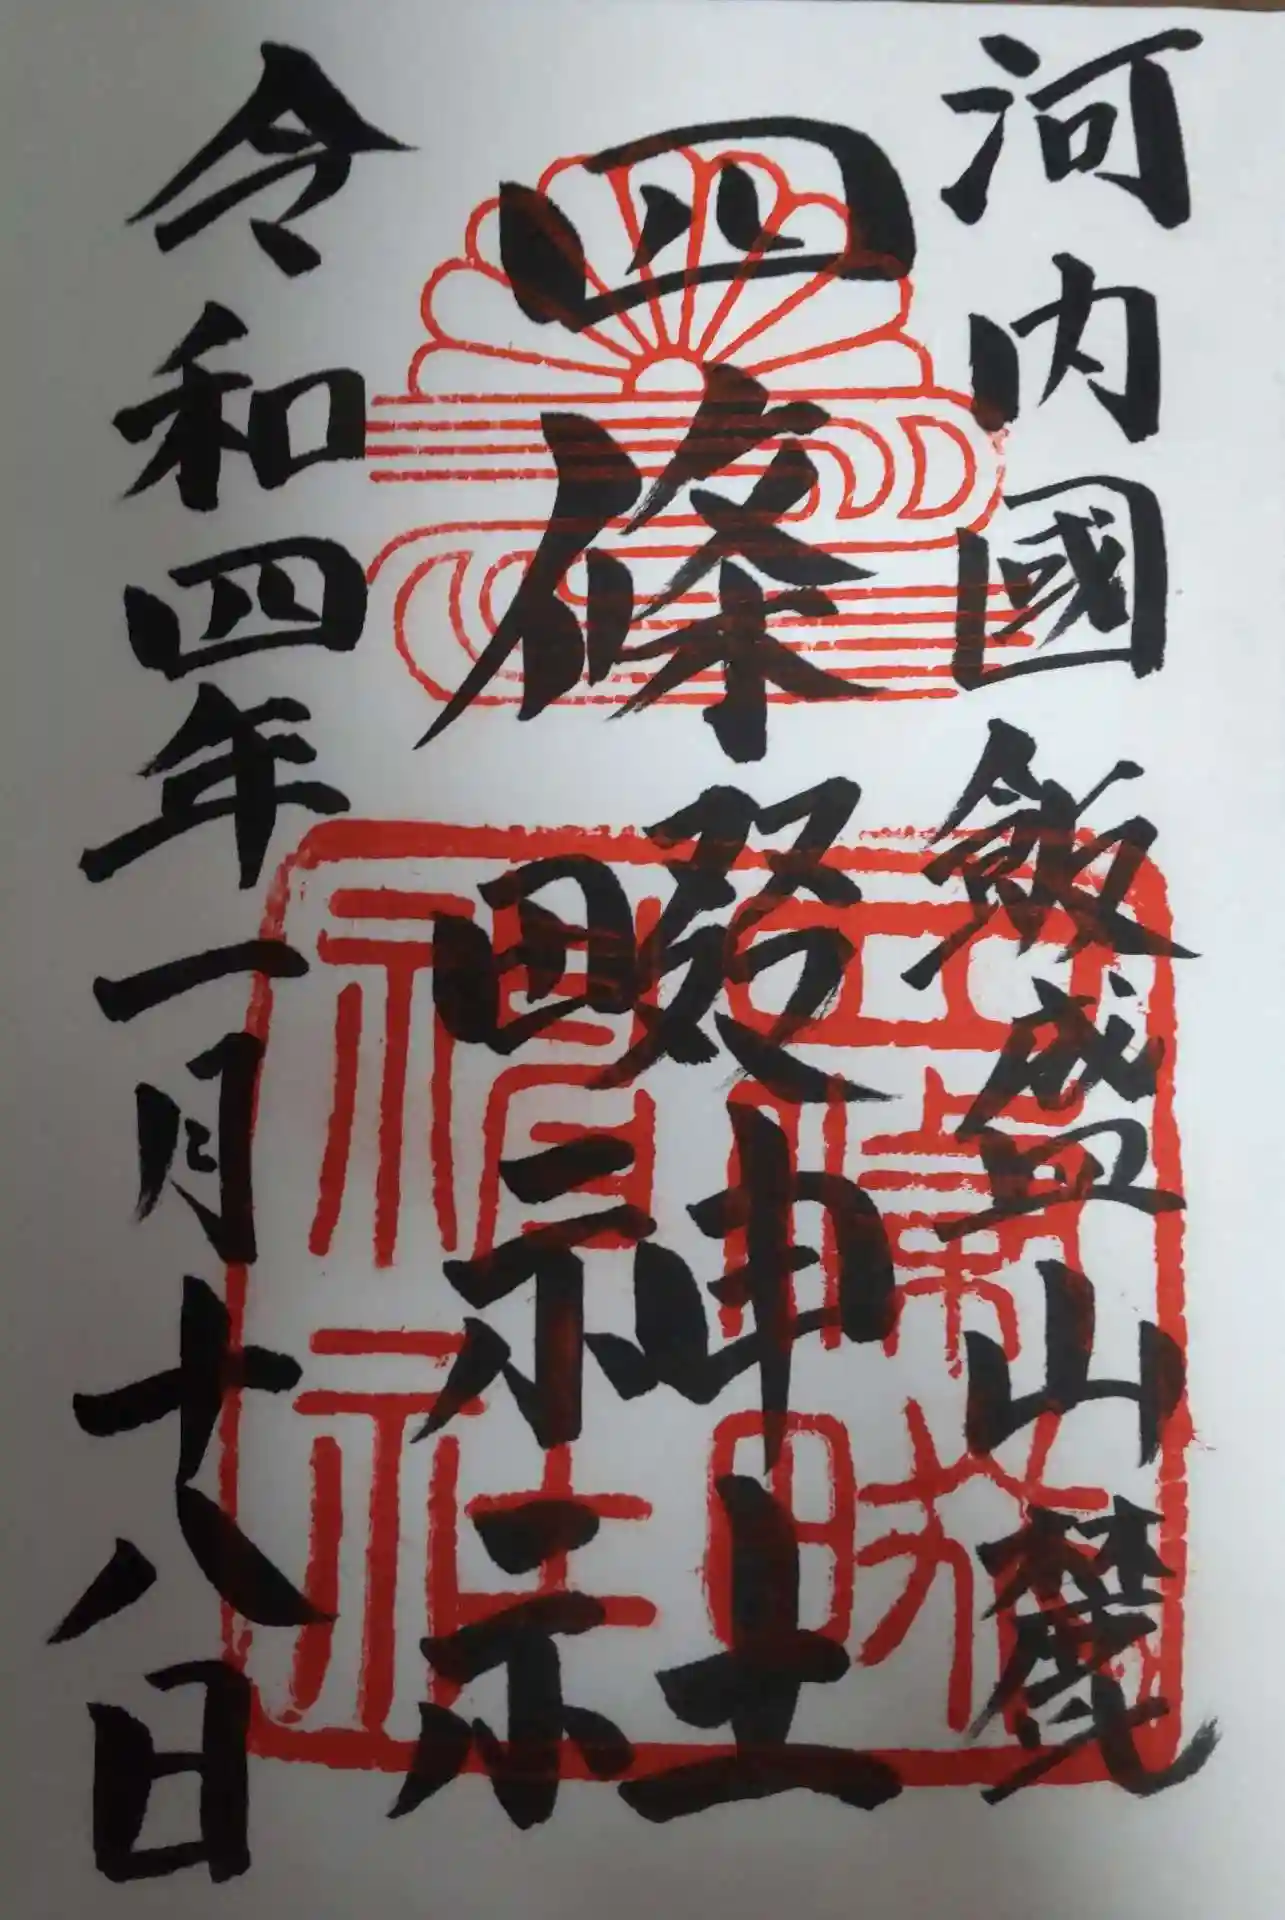 河内國飯盛山麓
四條畷神社
令和四年一月十八日
四條畷神社